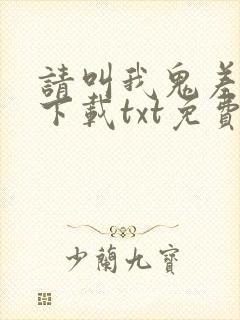 請叫我鬼差
下載txt免費
少蘭九寶